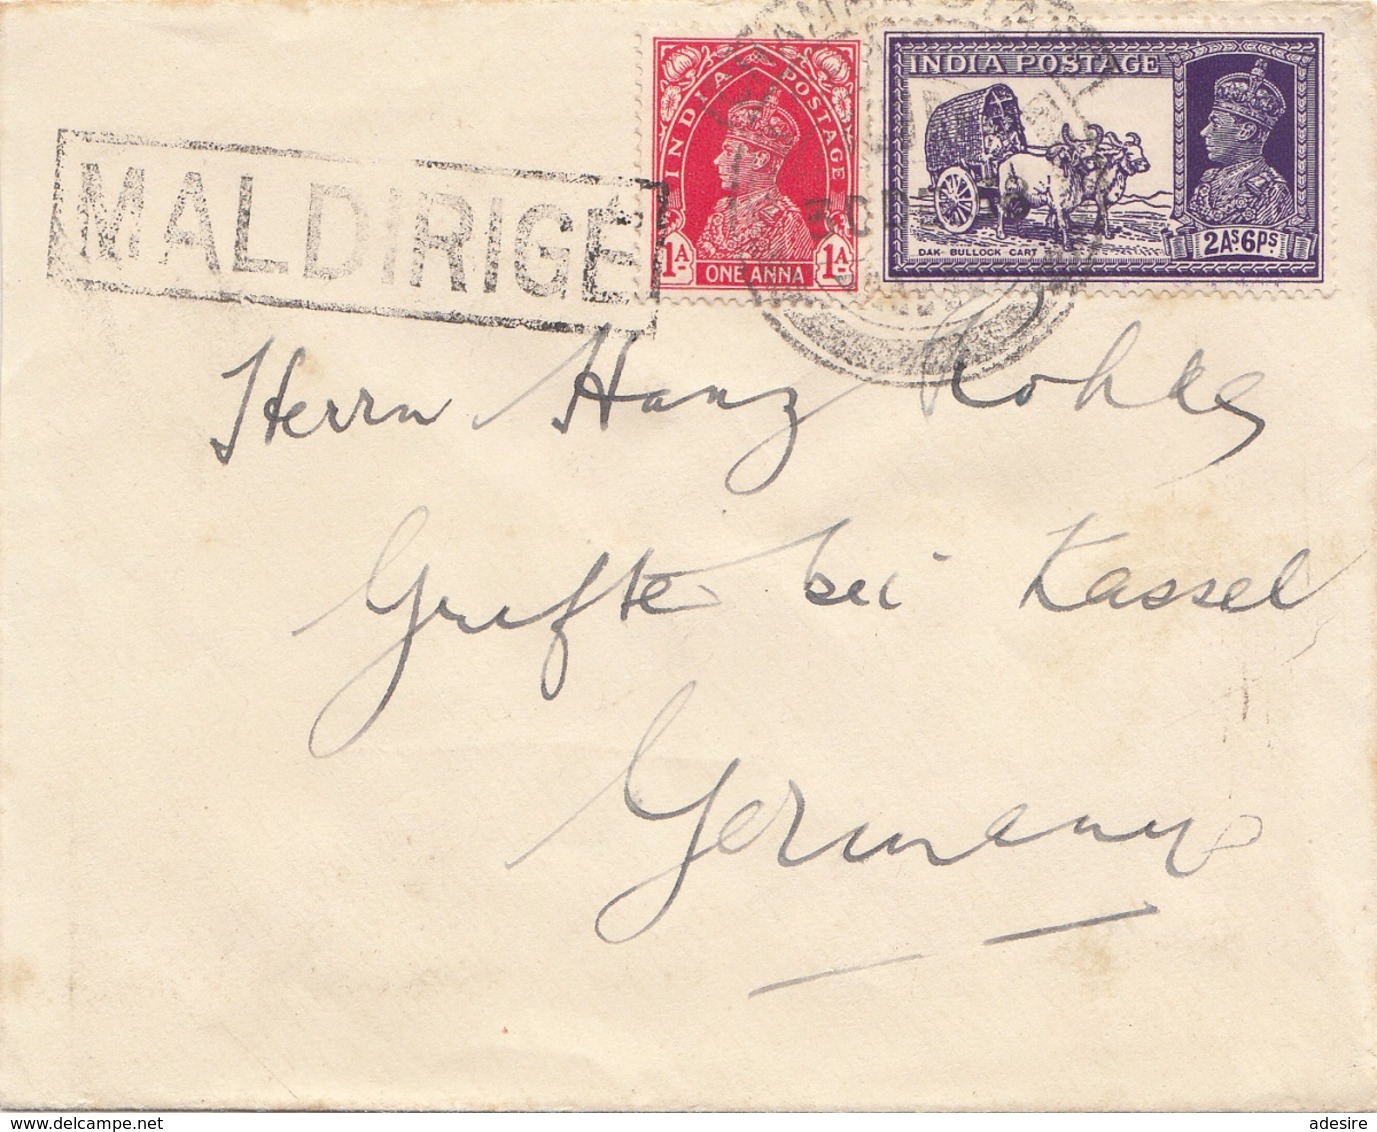 MALDIRIGE
INDIA POSTAGE
1A 1A
ONE ANNA
INDIA POSTAGE
DAK BULLOCK CART
2AS6PS
Herrn Hanz Kohke
Grifte bei Kassel
Germany
www.delcampe.net
adesire